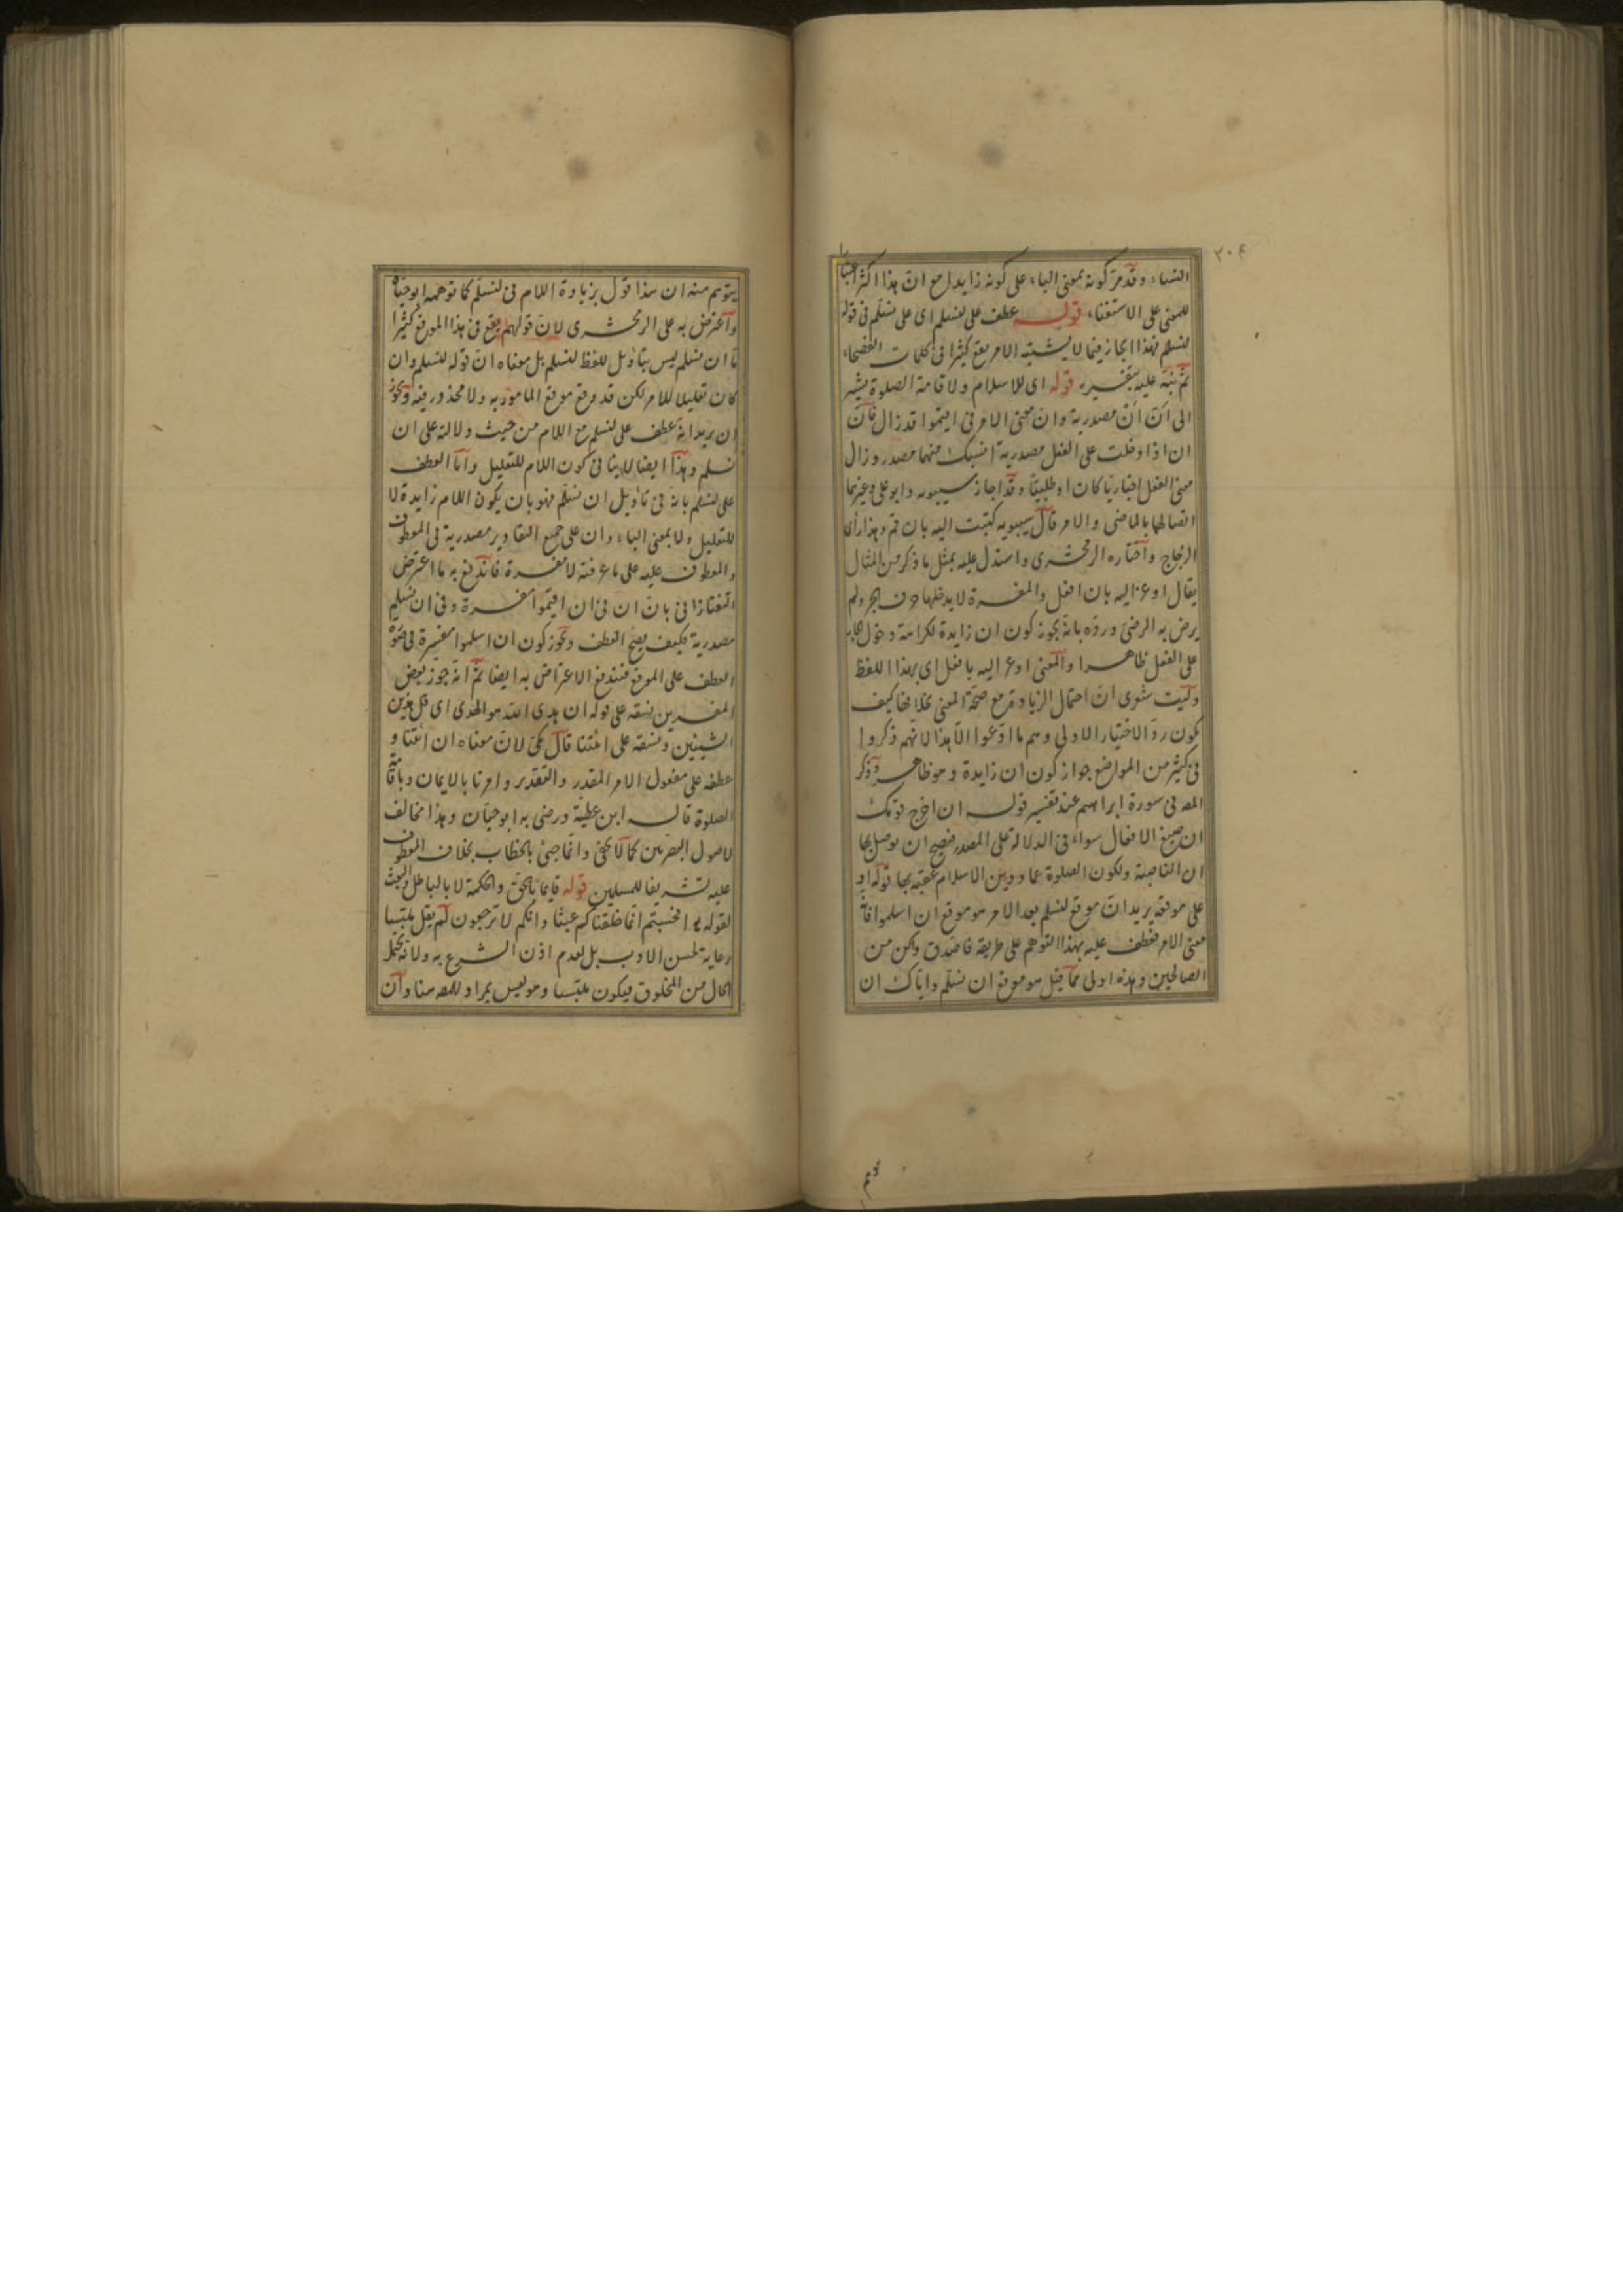 ٣٠٤
النساء وقد مر كونه بمعنى الباء على كونه زايدا مع ان هذا اكثر
للمعنى على الاستغناء قوله عطف على لنسلم اى على نسلم فى قوله
لنسلم فهذا ايجاز فيما لا يشتبه الامر يقع كثيرا فى كلمات الفصحاء
ثم نبه عليه بتفسيره قوله اى للاسلام ولاقامة الصلوة يشير
الى ان ان مصدرية وان معنى الامر فى اقيموا قد زال فان
ان اذا دخلت على الفعل مصدرية انسبك منهما مصدر وزال
معنى الفعل اخباريا كان او طلبيا وقد اجاز سيبويه وابو على وغيرهما
اتصالها بالماضى والامر قال سيبويه كتبت اليه بان قم وهذا راى
الزجاج واختاره الزمخشرى واستدل عليه بمثل ما ذكر من المثال
يقال اوعز اليه بان افعل والمفسرة لا يدخلها حرف الجر ولم
يرض به الرضى ورده بانه يجوز كون ان زايدة لكراهة دخول الجار
على الفعل ظاهرا والمعنى اوعز اليه بافعل اى بهذا اللفظ
وليت شعرى ان احتمال الزيادة مع صحة المعنى بخلافها كيف
يكون رد الاختيار الاولى وهم ما ادعوا الا هذا لانهم ذكروا
فى كثير من المواضع جواز كون ان زايدة وهو ظاهر وذكر
المص فى سورة ابراهيم عند تفسير قوله ان اخرج قومك
ان صيغ الافعال سواء فى الدلالة على المصدر فصح ان يوصل بها
ان الناصبة ولكون الصلوة عماد دين الاسلام عقبه بها قوله او
على موقعه يريد ان موقع لنسلم بعد الامر هو موقع ان اسلموا فانه
معنى الامر فعطف عليه بهذا التوهم على طريقة فاصدق واكن من
الصالحين وهذه اولى مما قيل هو موقع ان نسلم واياك ان
يتوهم منه ان هذا قول بزيادة اللام فى لنسلم كما توهمه ابو حيان
واعترض به على الزمخشرى لان قولهم يقع فى هذا الموقع كثيرا
ما ان نسلم ليس بتاويل للفظ لنسلم بل معناه ان قوله لنسلم وان
كان تعليلا للامر لكن قد وقع موقع المامور به ولا محذور فيه ويجوز
ان يريد انه عطف على لنسلم مع اللام من حيث دلالته على ان
نسلم وهذا ايضا لا ينافى كون اللام للتعليل واما العطف
على لنسلم بانه فى تاويل ان نسلم فهو بان يكون اللام زايدة لا
للتعليل ولا بمعنى الباء وان على جميع التقادير مصدرية فى المعطوف
والمعطوف عليه على ما عرفته لا مفسرة فاندفع به ما اعترض
التفتازانى بان ان فى ان اقيموا مفسرة وفى ان نسلم
مصدرية فكيف يصح العطف ويجوز كون ان اسلموا مفسرة فى صورة
العطف على الموقع فيندفع الاعتراض به ايضا ثم انه جوز بعض
المفسرين نسقه على قوله ان هدى الله هو الهدى اى قل هذين
الشيئين ونسقه على ائتنا قال مكى لان معناه ان ائتنا و
عطفه على مفعول الامر المقدر والتقدير وامرنا بالايمان وباقامة
الصلوة قاله ابن عطية ورضى به ابو حيان وهذا مخالف
لاصول البصريين كما لا يخفى وانما جئ بالخطاب بخلاف المعطوف
عليه تشريفا للمسلمين قوله قايما بالحق والحكمة لا بالباطل والعبث
لقوله تع افحسبتم انما خلقناكم عبثا وانكم لا ترجعون لم يقل ملتبسا
رعاية لحسن الادب بل لعدم اذن الشرع به ولانه يحتمل
الحال من المخلوق فيكون ملتبسا وهو ليس بمراد للمص هنا وان